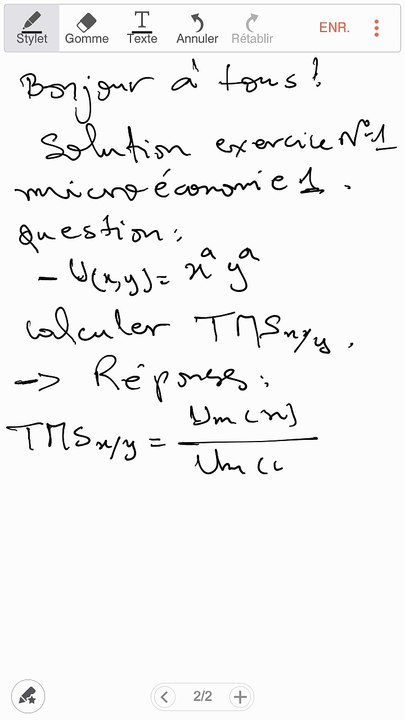 Stylet Gomme Texte Annuler Rétablir ENR.
Bonjour à tous!
Solution exercice N°1
microéconomie 1.
question:
- U(x,y) = x^a y^a
calculer TMSx/y.
-> Réponses:
TMSx/y = Um(x)
Um((
2/2